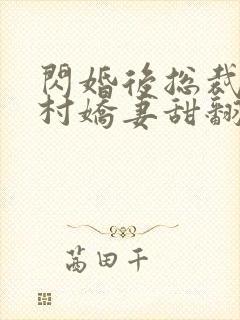 閃婚後總裁
村嬌妻甜翻
茵田千